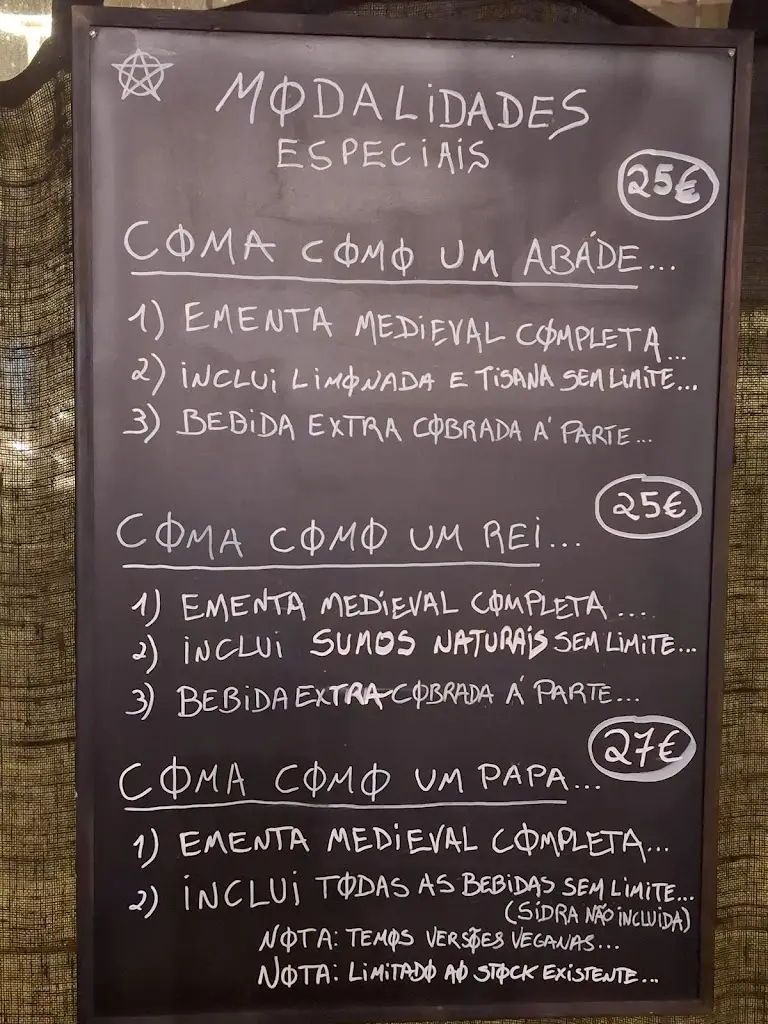 MODALIDADES
ESPECIAIS
25€
COMA COMO UM ABÁDE...
1) EMENTA MEDIEVAL COMPLETA...
2) INCLUI LIMONADA E TISANA SEM LIMITE...
3) BEBIDA EXTRA COBRADA Á PARTE...
25€
COMA COMO UM REI...
1) EMENTA MEDIEVAL COMPLETA ....
2) INCLUI SUMOS NATURAIS SEM LIMITE...
3) BEBIDA EXTRA COBRADA Á PARTE...
27€
COMA COMO UM PAPA...
1) EMENTA MEDIEVAL COMPLETA...
2) INCLUI TODAS AS BEBIDAS SEM LIMITE...
(SIDRA NÃO INCLUIDA)
NOTA: TEMOS VERSÕES VEGANAS...
NOTA: LIMITADO AO STOCK EXISTENTE...